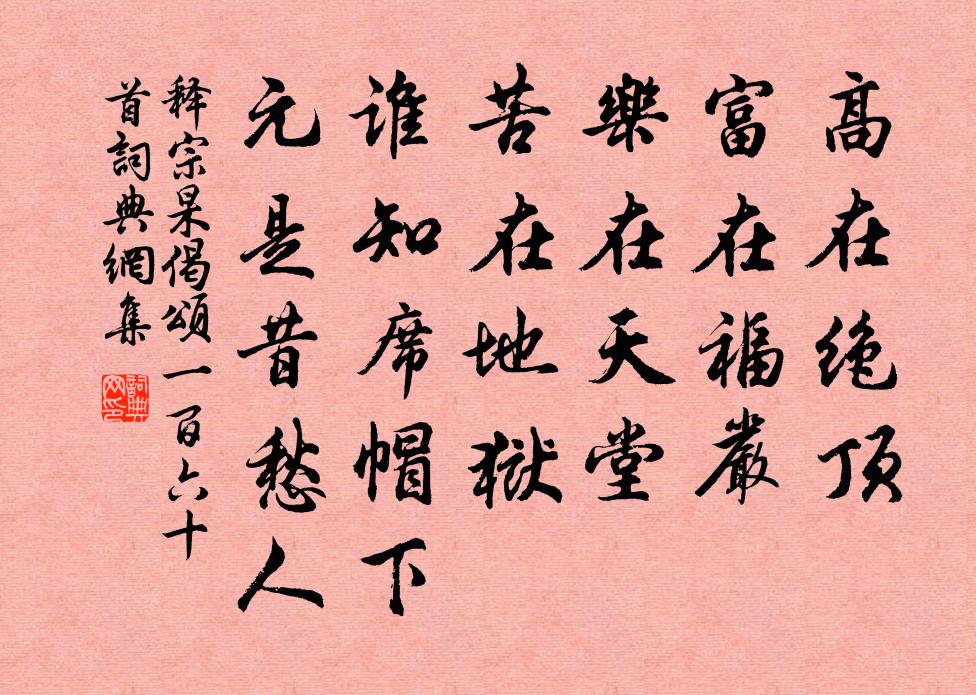 高在绝顶
富在福嚴
樂在天堂
苦在地獄
谁知席帽下
元是昔愁人
释宗杲偈頌一百六十
首詞典網集
詞典
网印